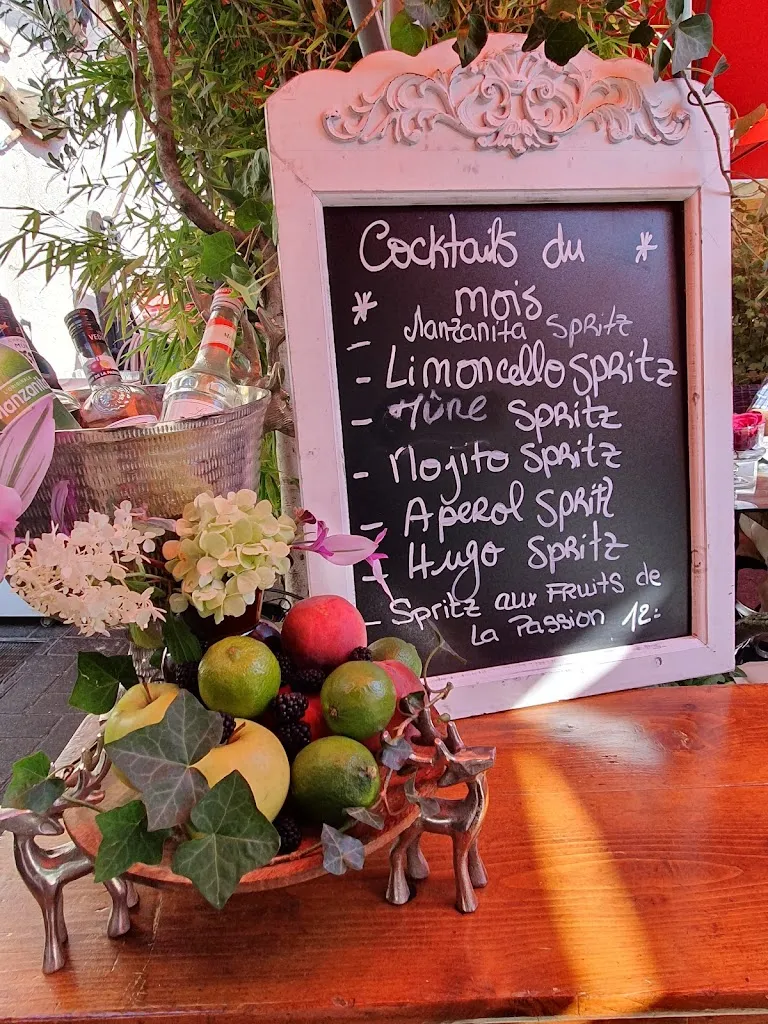 Cocktails du *
* mois
- Manzanita Spritz
- Limoncello Spritz
- Mûre Spritz
- Mojito Spritz
- Aperol Spritz
- Hugo Spritz
- Spritz aux Fruits de
La Passion 12.-
Manzani